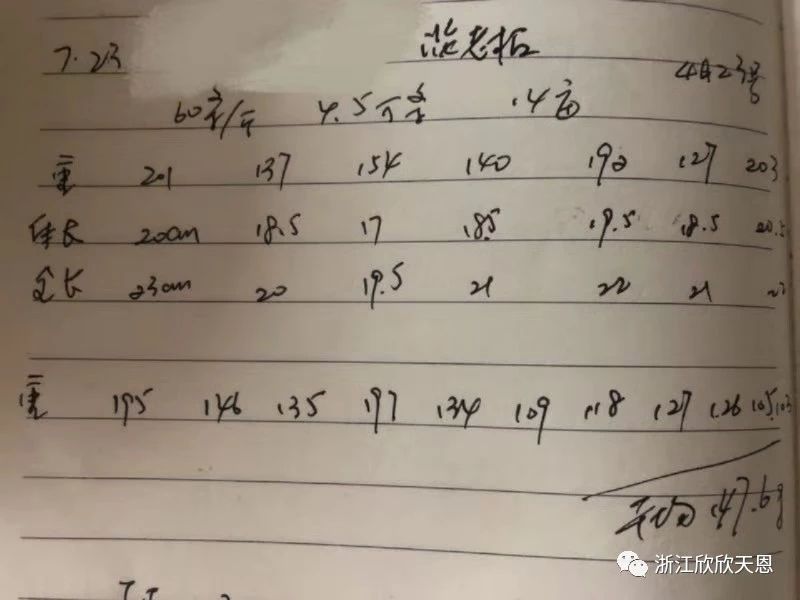 7.23 老板 4月23号
60 /斤 4.5万 14亩
重 201 137 154 140 192 127 203
体长 20cm 18.5 17 18.5 19.5 18.5 20.5
全长 23cm 20 19.5 21 22 21
重 195 146 135 197 134 109 118 127 126 105 103
平均 147.6g
浙江欣欣天恩